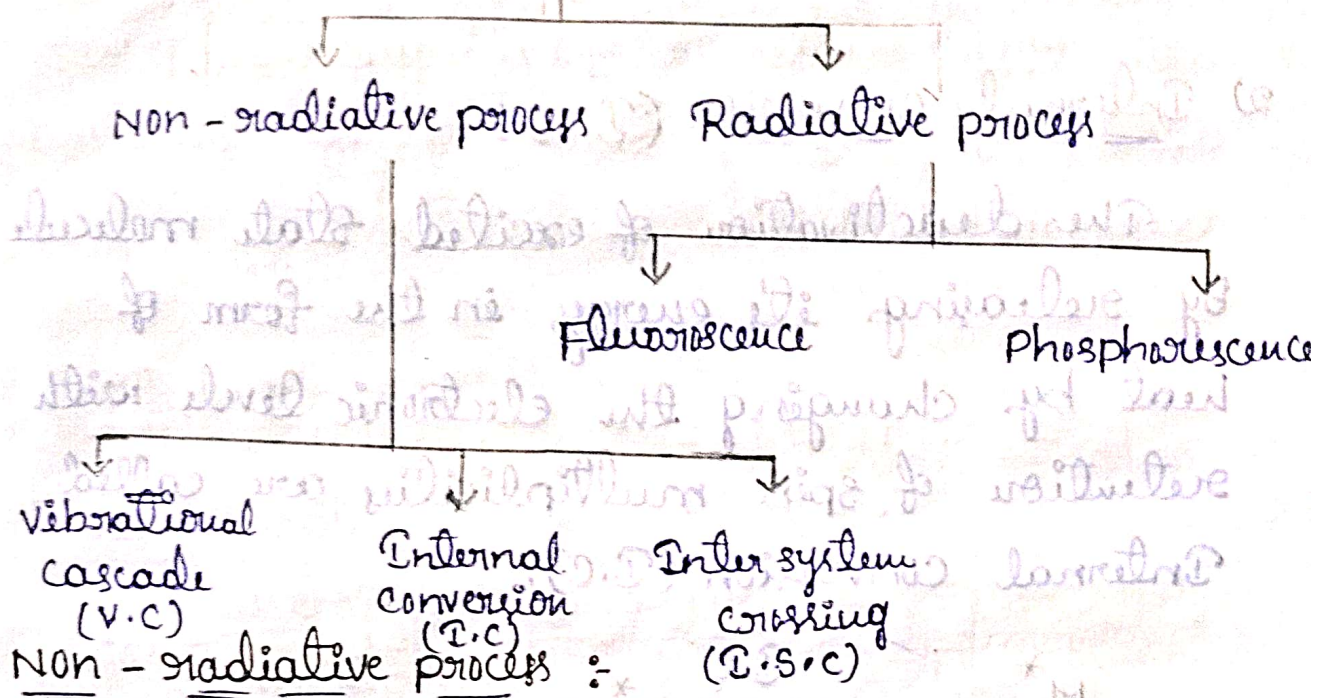 Non - radiative process Radiative process
Fluoroscence Phosphorescence
Vibrational
cascade
(V.C)
Internal
conversion
(I.C)
Inter system
crossing
(I.S.C)
Non - radiative process :-